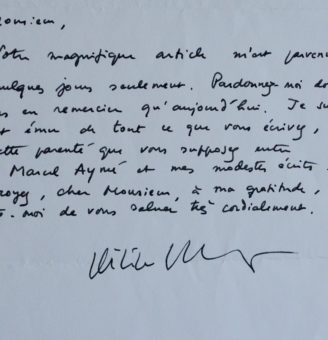 onsieur,
otre magnifique article m'est parvenu
uelques jours seulement. Pardonnez-moi do
us en remercier qu'aujourd'hui. Je su
t ému de tout ce que vous écrivez,
ette parenté que vous supposez entre
Marcel Aymé et mes modestes écrits.
royez, cher Monsieur, à ma gratitude,
ts-moi de vous saluer très cordialement.